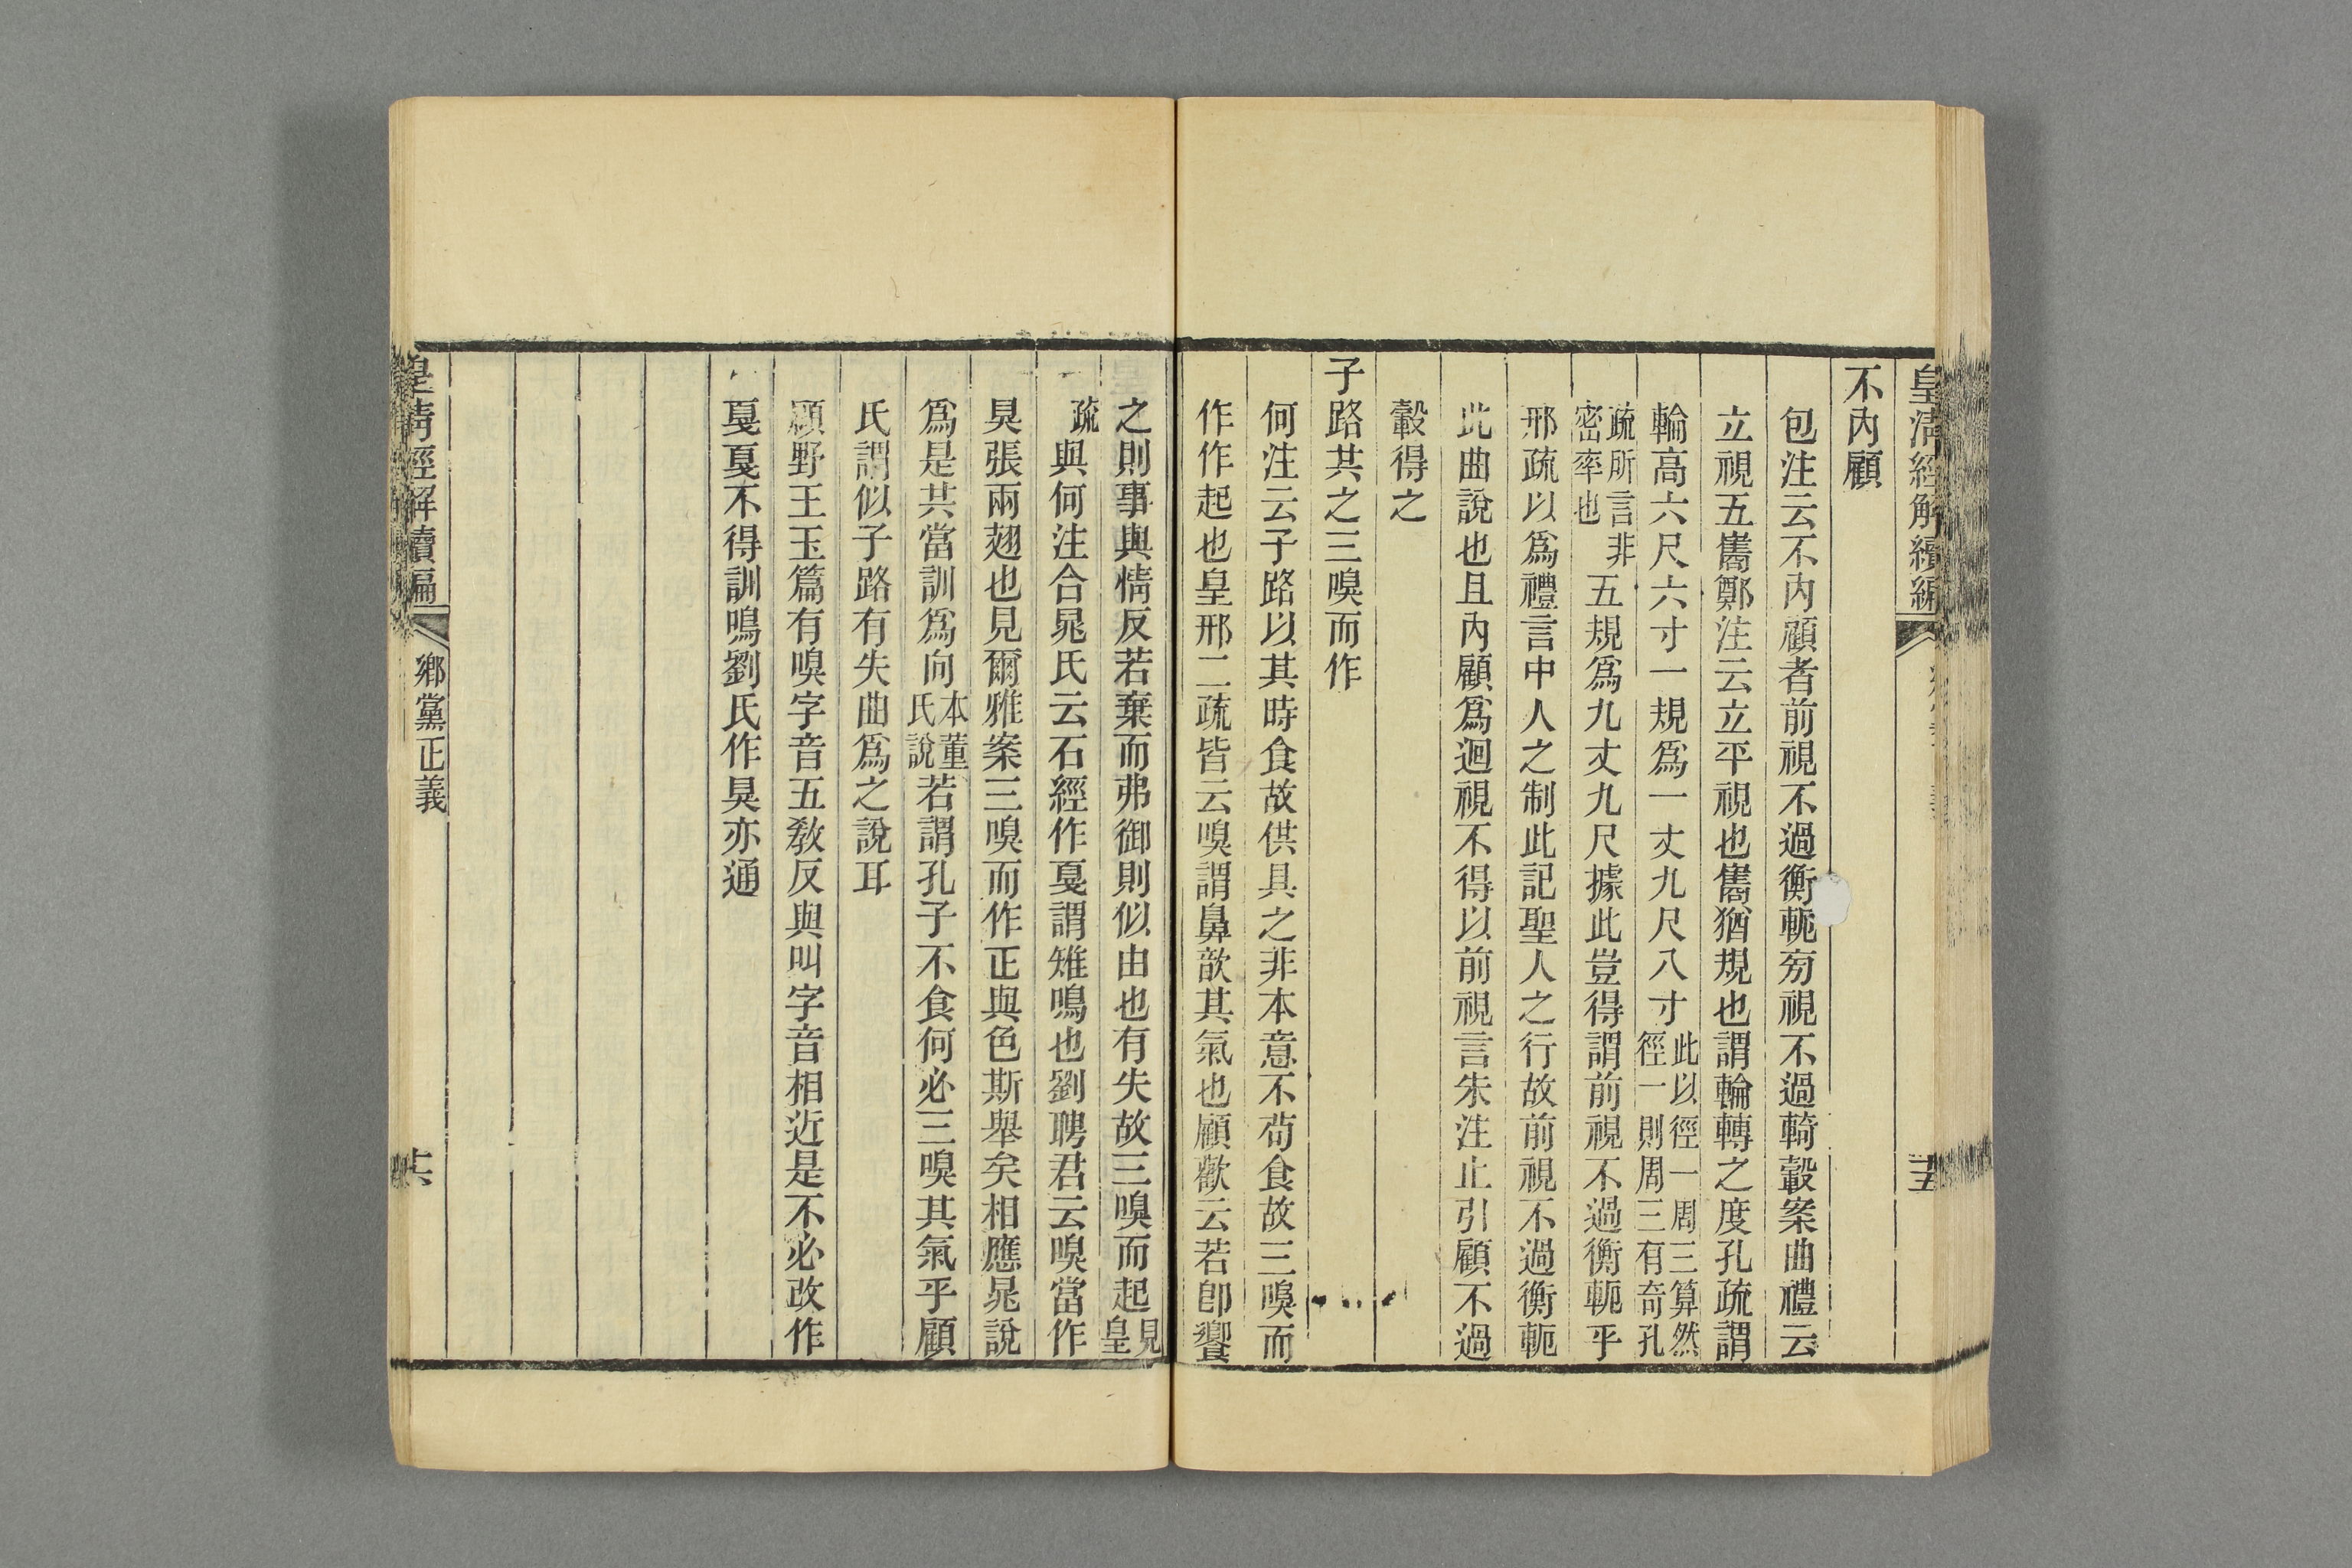 皇清經解續編
十五
不內顧
包注云不內顧者前視不過衡軛旁視不過輢轂案曲禮云
立視五巂鄭注云立平視也巂猶規也謂輪轉之度孔疏謂
輪高六尺六寸一規爲一丈九尺八寸此以徑一周三算然徑一則周三有奇孔
疏所言非密率也五規爲九丈九尺據此豈得謂前視不過衡軛乎
邢疏以爲禮言中人之制此記聖人之行故前視不過衡軛
此曲說也且內顧爲迴視不得以前視言朱注止引顧不過
轂得之
子路共之三嗅而作
何注云子路以其時食故供具之非本意不苟食故三嗅而
作作起也皇邢二疏皆云嗅謂鼻歆其氣也顧歡云若卽饗
之則事與情反若棄而弗御則似由也有失故三嗅而起見皇
疏與何注合晁氏云石經作戛謂雉鳴也劉聘君云嗅當作
狊張兩翅也見爾雅案三嗅而作正與色斯舉矣相應晁說
爲是共當訓爲向本董氏說若謂孔子不食何必三嗅其氣乎顧
氏謂似子路有失曲爲之說耳
顧野王玉篇有嗅字音五敎反與叫字音相近是不必改作
戛戛不得訓鳴劉氏作狊亦通
皇淸經解續編
鄉黨正義
十六